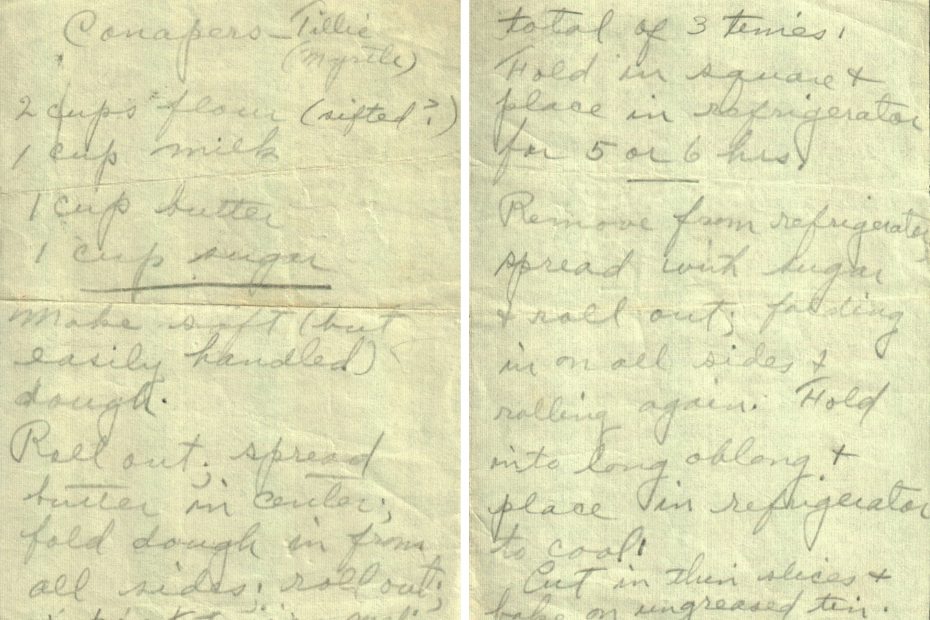 Conapers - Tillie
(Myrtle)
2 cups flour (sifted?)
1 cup milk
1 cup butter
1 cup sugar
Make soft (but
easily handled)
dough.
Roll out; spread
butter in center;
fold dough in from
all sides; roll out;
total of 3 times.
Fold in square &
place in refrigerator
for 5 or 6 hrs.
Remove from refrigerator,
spread with sugar
& roll out; folding
in on all sides &
rolling again. Fold
into long oblong &
place in refrigerator
to cool.
Cut in thin slices &
bake on ungreased tin.